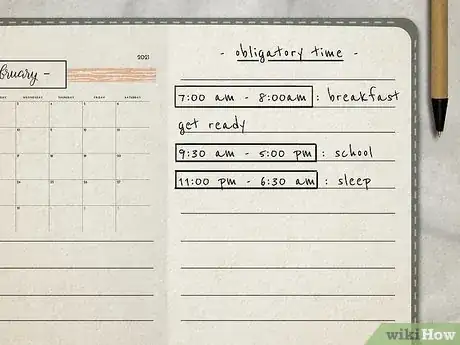 bruary -
2021
WEDNESDAY THURSDAY FRIDAY SATURDAY
- obligatory time -
7:00 am - 8:00am : breakfast
get ready
9:30 am - 5:00 pm : school
11:00 pm - 6:30 am : sleep
wikiHow